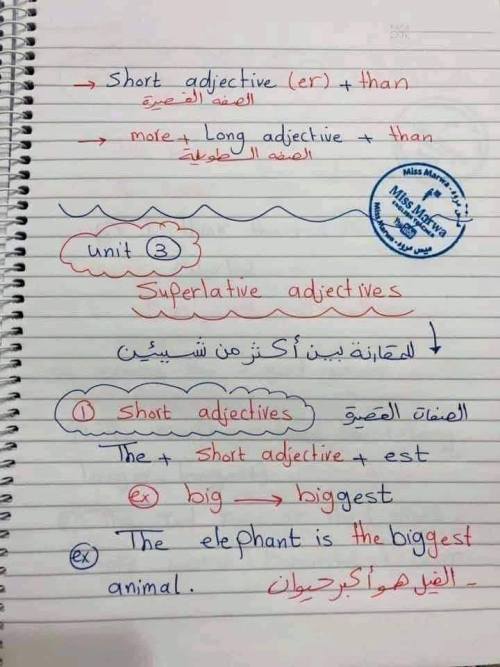 → Short adjective (er) + than
الصفه القصيرة
→ more + Long adjective + than
الصفه الطويلة
Miss Marwa
ميس مروه
Miss Marwa
Miss Marwa
ميس مروه
unit ③
Superlative adjectives
للمقارنة بين أكثر من شيئين ↓
① Short adjectives الصفات القصيرة
The + short adjective + est
ex big → biggest
ex The elephant is the biggest
animal. الفيل هو أكبر حيوان -